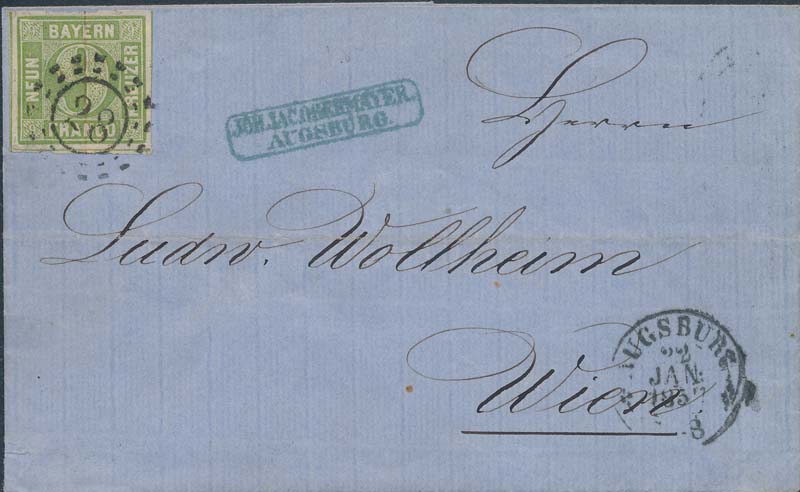 BAYERN
NEUN
KREUZER
FRANCO
28
JOH. JAC. OBERMAYER.
AUGSBURG.
Herrn
Ludw. Wollheim
Wien
AUGSBURG
22
JAN.